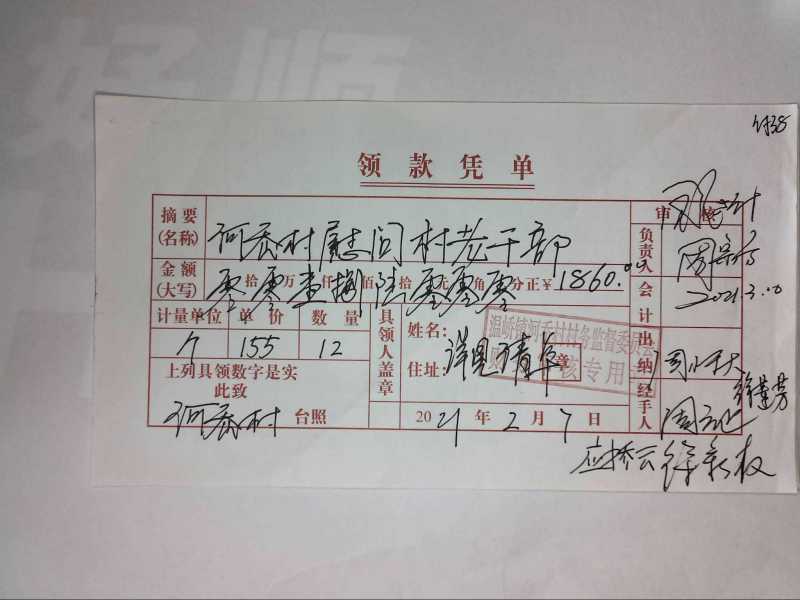 好顺
领款凭单
摘要(名称) 河岙村慰问村老干部
审核
负责人
金额(大写) 零拾零万壹仟捌佰陆拾零元零角零分正¥1860.00
会计 2021.3.
计量单位 单价 数量
个 155 12
具领人盖章
姓名:
住址: 详见清单
盖章
温峤镇河岙村村务监督委员会
审核专用章
出纳
上列具领数字是实
此致
河岙村 台照
2021年2月7日
经手人
应桥云 徐新权